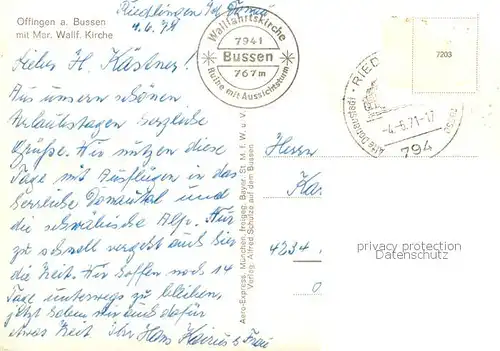 Offingen a. Bussen
mit Mar. Wallf. Kirche
Riedlingen
4.6.71
Lieber H. Kästner!
Aus unseren schönen
Urlaubstagen herzliche
Grüße. Wir nützen diese
Tage mit Ausflügen in das
herrliche Donautal und
die schwäbische Alp. Nur
zu schnell vergeht auch hier
die Zeit. Wir hoffen noch 14
Tage unterwegs zu bleiben,
jetzt haben wir auch dafür
etwas Zeit. Ihr Hans & Frau
Wallfahrtskirche
7941
Bussen
767m
Ruine mit Aussichtsturm
Aero-Express, München, freigeg. Bayer. St. M. f. W. u. V.
Verlag: Alfred Schulze auf dem Bussen
7203
-4.-6.71-17
794
Herrn
Kä
4234
privacy protection
Datenschutz